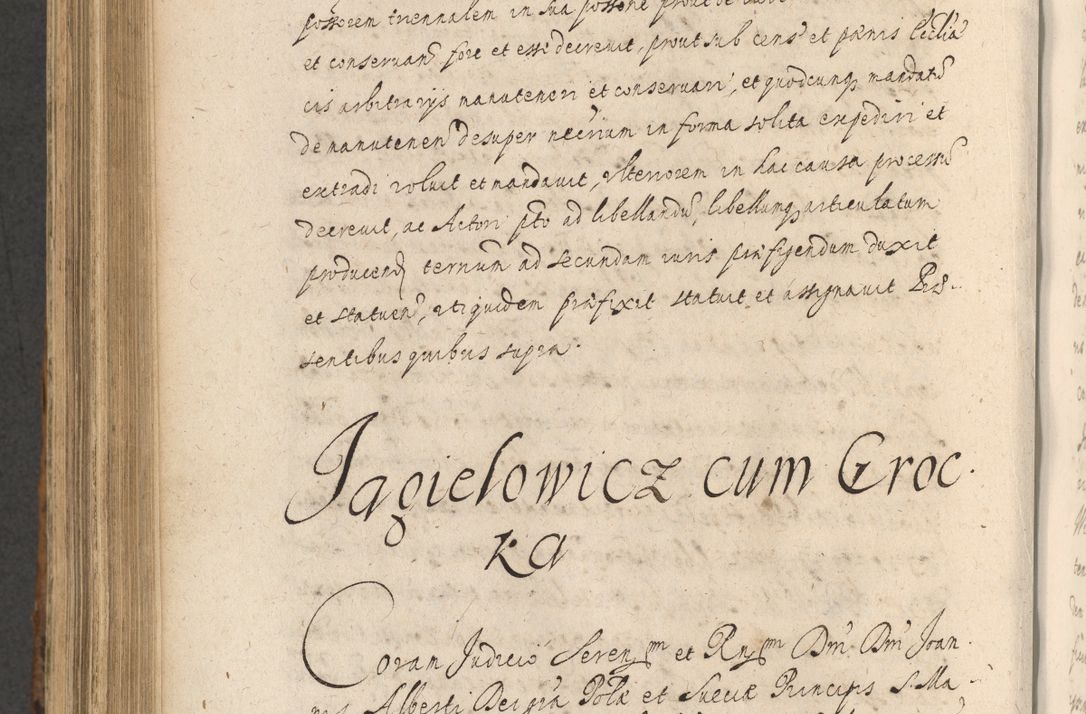 possorem triennalem in sua possone
et conservan fore et esse decrevit, prout sub cens et pænis Ecclia
cis arbitrarijs manuteneri et conservari, et quodcunq mandatu
de manutenen desuper nccrium in forma solita expediri et
extradi voluit et mandavit, ulteriorem in hac causa processu
decrevit, ac Actori pto ad libellandu, libellumq articulatum
producend terminum ad secundam iuris præfigendum duxit
et statuen, uti quidem præfixit statuit et assignavit Præ
sentibus quibus supra.
Jagielowicz cum Groc
ka
Coram Judicio Seren et Rn Dni Dni Joan
nis Alberti Dei gra Polæ et Sueciæ Principis S. Ma